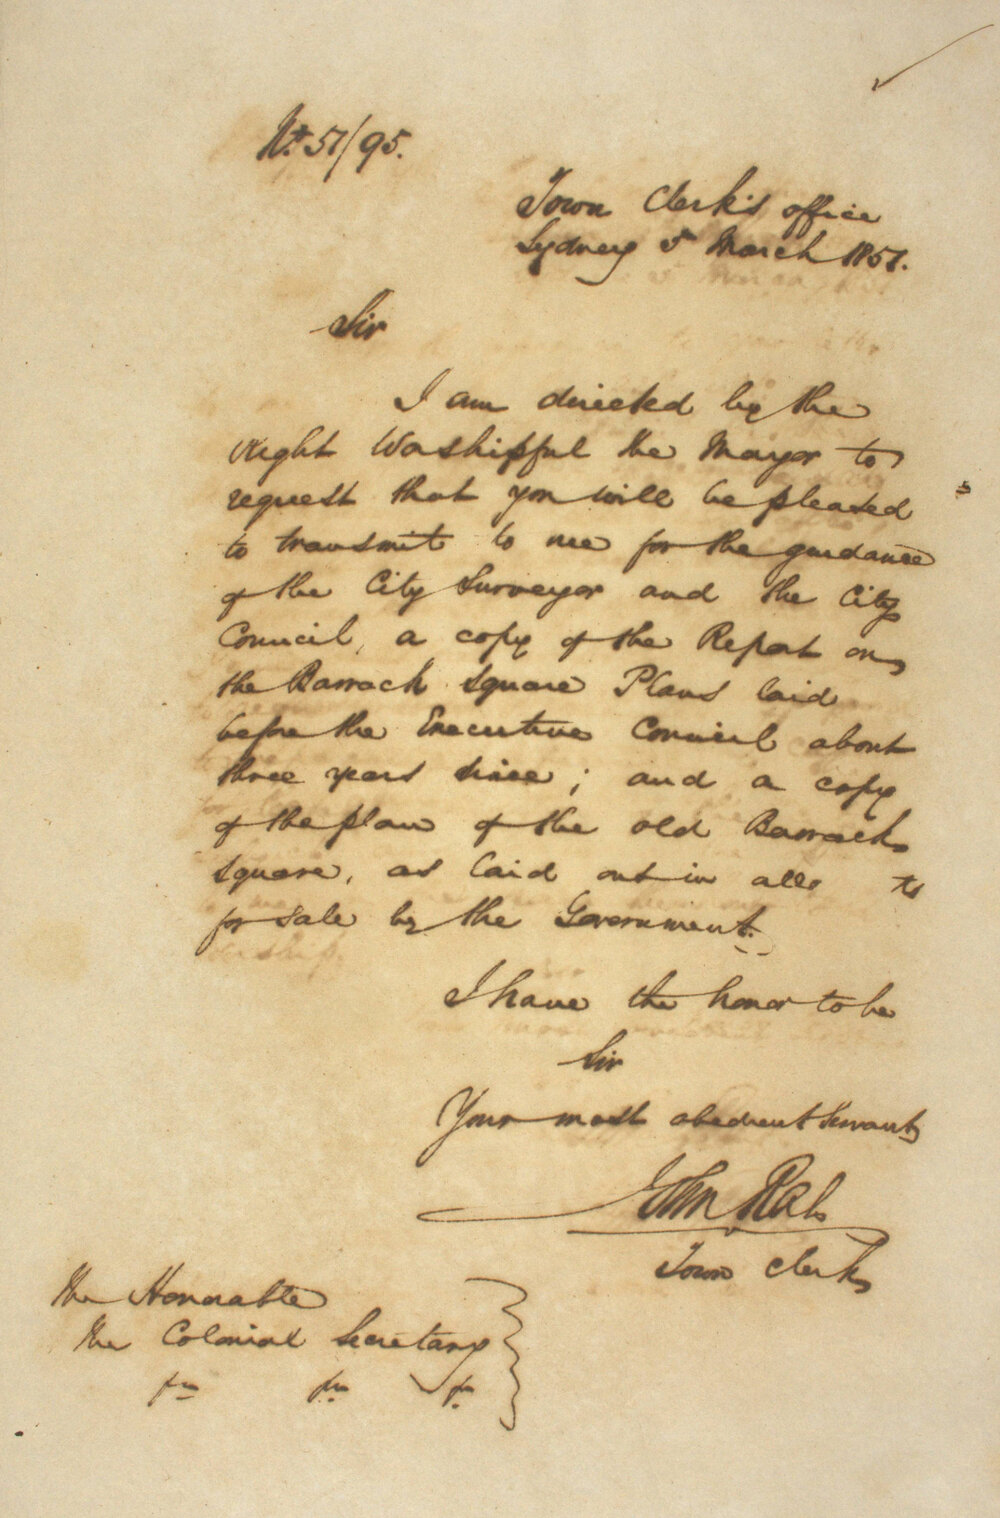 No. 51/95.
Town Clerk's office
Sydney 5 March 1851.
Sir
I am directed by the
Right Worshipful the Mayor to
request that you will be pleased
to transmit to me for the guidance
of the City Surveyor and the City
Council, a copy of the Report on
the Barrack Square Plans laid
before the Executive Council about
three years since; and a copy
of the plan of the old Barrack
Square, as laid out in allo ts
for sale by the Government.
I have the honor to be
Sir
Your most obedient Servant
John Rae
Town Clerk
The Honorable
the Colonial Secretary